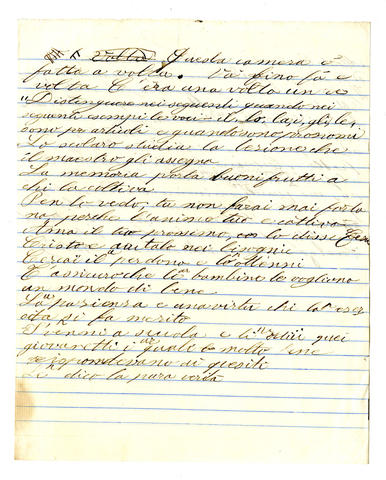 Volta Questa camera è
fatta a volta. Vai fino là e
volta C'era una volta un re
"Distinguere nei seguenti quando nei
seguenti esempi le voci - il, lo, la, i, gli, le,
sono per articoli e quando sono pronomi
Lo scolaro studia la lezione che
il maestro gli assegna
La memoria porta buoni frutti a
chi la coltiva
Pen lo vedo, tu non farai mai fortu
na perche l'animo tuo e cattivo
Ama il tuo prossimo, cos lo disse Gesu
Cristo e aiutalo nei bisogni
Cercai il perdono e lo ottenni
T'assicuro che le bambine le vogliono
un mondo di bene
La pazienza e una virtu chi la eser
cita si fa merito
Venni a scuola e li udii quei
giovanetti i quali e molto bene
rispondevano ai quesiti
Le dico la pura verita